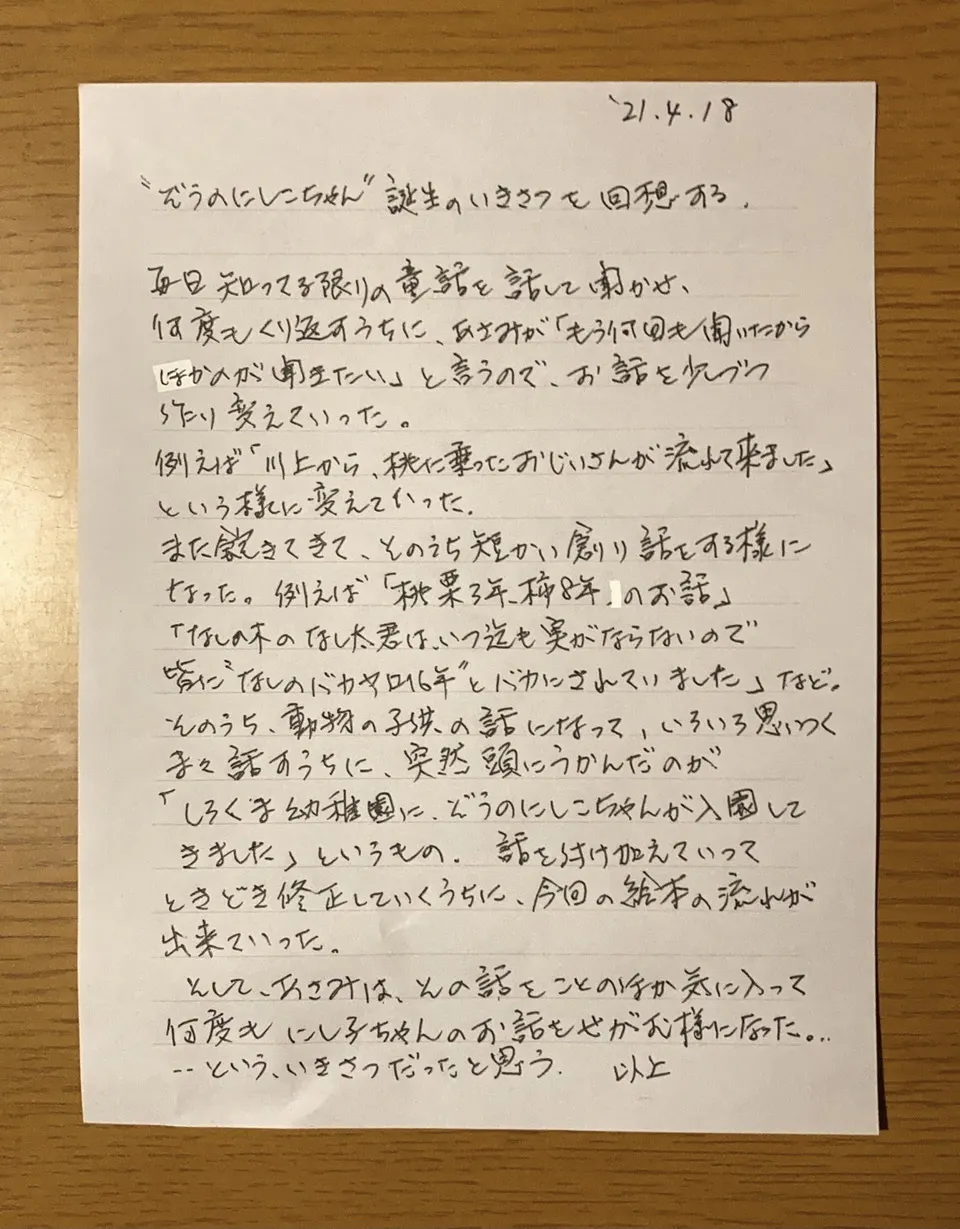 '21.4.18
"ぞうのにしこちゃん"誕生のいきさつを回想する.
毎日知ってる限りの童話を話して聞かせ、
何度もくり返すうちに、あさみが「もう何回も聞いたから
ほかのが聞きたい」と言うので、お話を少しづつ
作たり変えていった。
例えば「川上から、桃に乗ったおじいさんが流れて来ました」
という様に変えていった.
また飽きてきて、そのうち短かい創り話をする様に
なった。例えば「桃栗3年、柿8年」のお話」
「なしの木のなし太君は、いつ迄も実がならないので
皆に"なしのバカヤロ16年"とバカにされていました」など。
そのうち、動物の子供の話になって、いろいろ思いつく
まゝ話すうちに、突然頭にうかんだのが
「しろくま幼稚園に、ぞうのにしこちゃんが入園して
きました」というもの. 話を付け加えていって
ときどき修正していくうちに、今回の絵本の流れが
出来ていった。
そして、あさみは、その話をことのほか気に入って
何度も にし子ちゃんのお話をせがむ様になった。..
--という、いきさつだったと思う. 以上